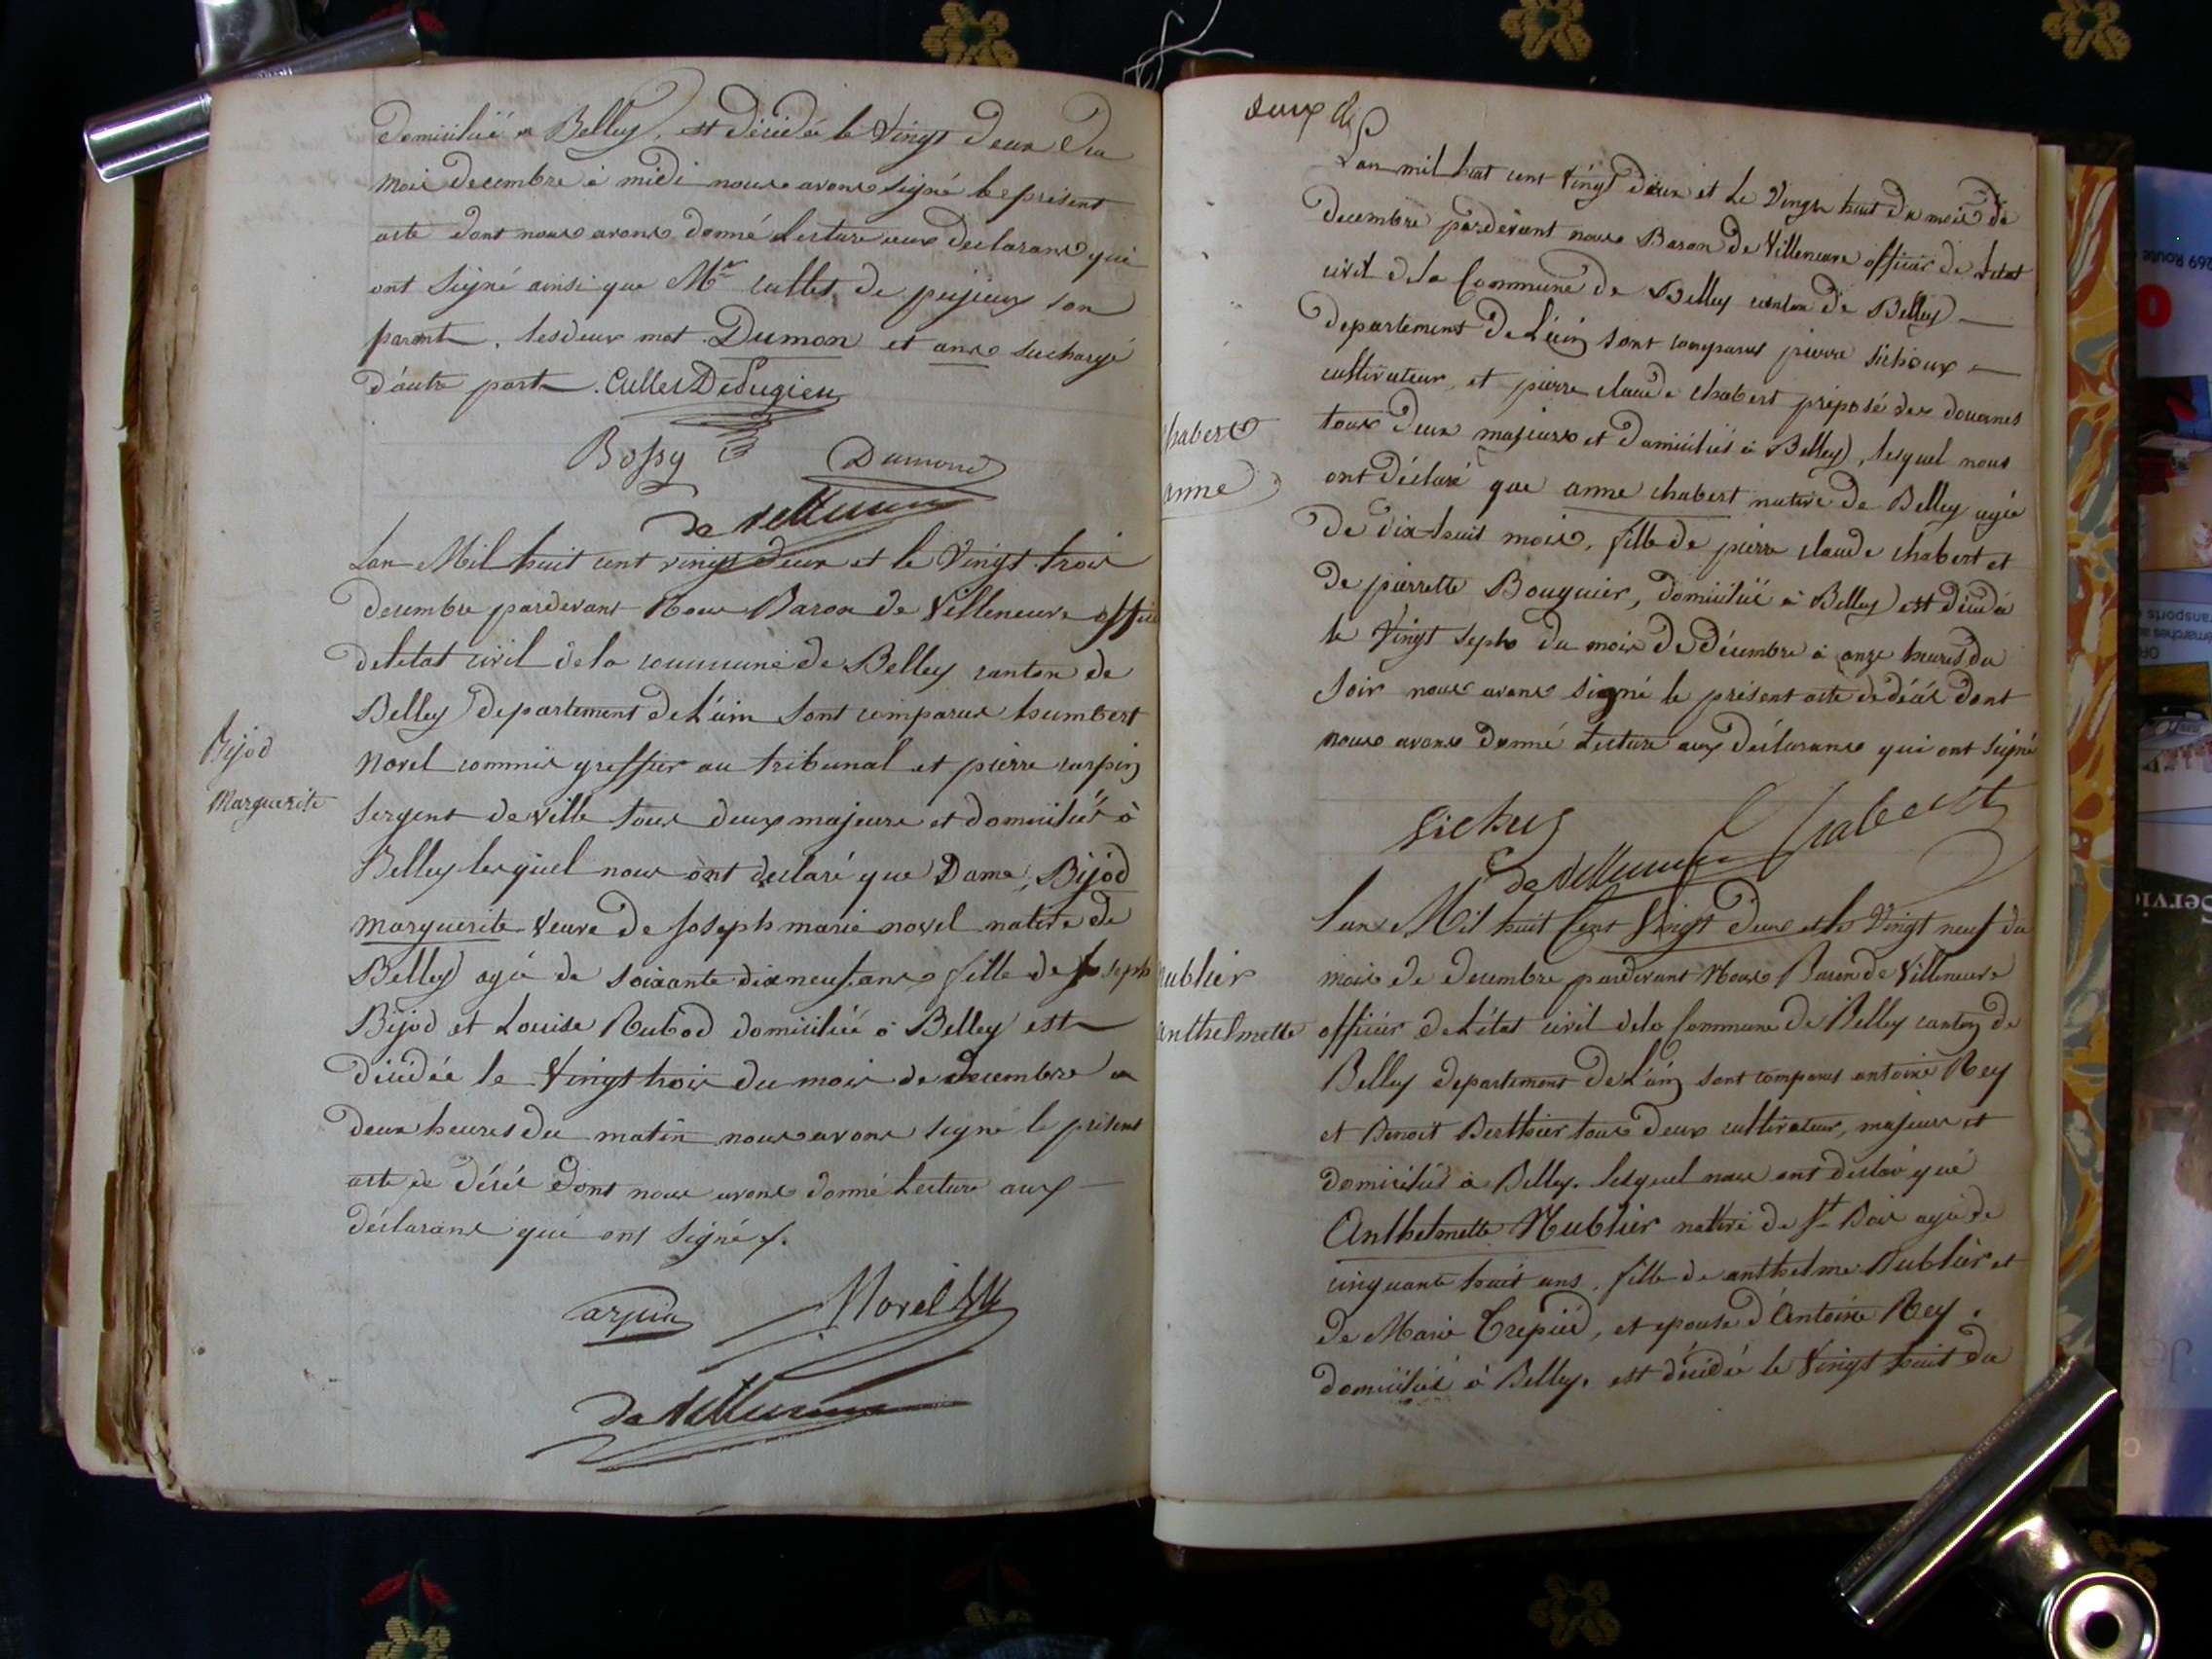 domiciliée a Belley, est décédée le Vingt deux du
mois decembre à midi nous avons signé le présent
acte dont nous avons donné lecture aux declarans qui
ont Signé ainsi que Mr cullet de pugieux son
parent. les deux mot Dumon et ans surchargé
d'autre part. Cullet De Pugieu
Bossy Dumond
de Villeneuve
Lan Mil huit cent vingt deux et le Vingt trois
decembre pardevant Nous Baron de Villeneuve offici
deletat civil dela commune de Belley canton de
Belley departement de L'ain Sont comparus humbert
Novel commis greffier au tribunal et pierre carpin
Sergent de ville tous deux majeurs et domiciliés à
Belley lesquel nous ont declaré que Dame, Bijod
marguerite veuve de Joseph marie novel native de
Belley agée de soixante dixneuf ans fille de Joseph
Bijod et Louise Rubod domiciliée à Belley est
décédée le Vingt trois du mois de decembre a
deux heures du matin nous avons signé le présent
acte de décés dont nous avons donné Lecture aux
déclarans qui ont signé
Bijod
Marguerite
Carpin Novel
de Villeneuve
deux de
Lan mil huit cent Vingt deux et le Vingt huit du mois de
decembre pardevant nous Baron de Villeneuve officier de letat
civil de la Commune de Belley canton de Belley
departement de L'ain sont comparus pierre Sichoux
cultivateur, et pierre claude chabert préposé des douanes
tous deux majeurs et domiciliés à Belley, lesquel nous
ont déclaré que anne chabert native de Belley agée
de dix-huit mois, fille de pierre claude chabert et
de pierrette Bouquier, domiciliée à Belley est décédée
le Vingt Sept du mois de décembre à onze heures du
Soir nous avons signé le présent acte de décés dont
nous avons donné Lecture aux déclarans qui ont signé
habert
anne
Sichus Chabert
de Villeneuve
Lan Mil huit Cent Vingt deux et le Vingt neuf du
mois de decembre pardevant Nous Baron de Villeneuve
officier de L'état civil dela Commune de Belley canton de
Belley departement de L'ain sont comparus antoine Rey
et Benoit Berthier tous deux cultivateur, majeurs et
domiciliés à Belley. lesquel nous ont declaré que
Anthelmette Nublier native de St Bois agée de
cinquante huit ans, fille de anthelme Nublier et
de Marie Trepied, et epouse d'Antoine Rey.
domiciliée à Belley. est décédée le Vingt huit du
ublier
anthelmette
269 Route